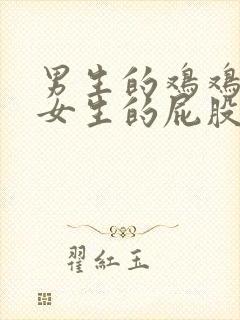 男生的鸡鸡
女生的屁股
翟紅玉